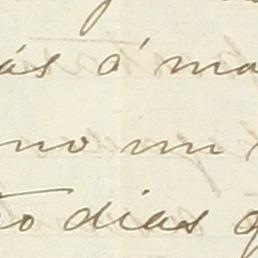 ás á ma
no un
to dias q